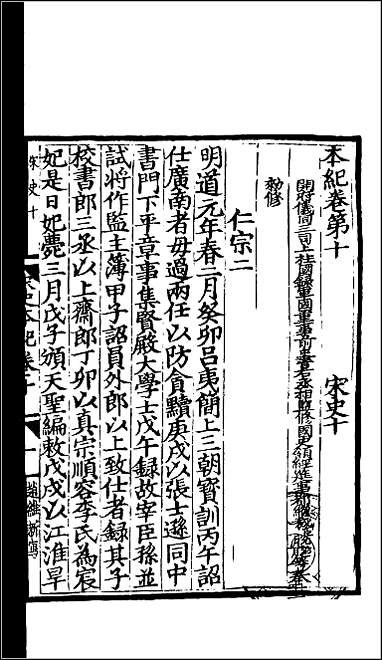 本紀卷第十　宋史十
開府儀同三司上柱國錄軍國重事前中書右丞相監修國史領經筵事都總裁脫脫等奉
勑修
仁宗二
明道元年春二月癸卯呂夷簡上三朝寶訓丙午詔
仕廣南者毋過兩任以防貪黷庚戌以張士遜同中
書門下平章事集賢殿大學士戊午録故宰臣孫並
試將作監主簿甲子詔員外郎以上致仕者録其子
校書郎三丞以上齋郎丁卯以真宗順容李氏為宸
妃是日妃薨三月戊子頒天聖編敕戊戌以江淮旱
宋史十
宋史本紀卷十